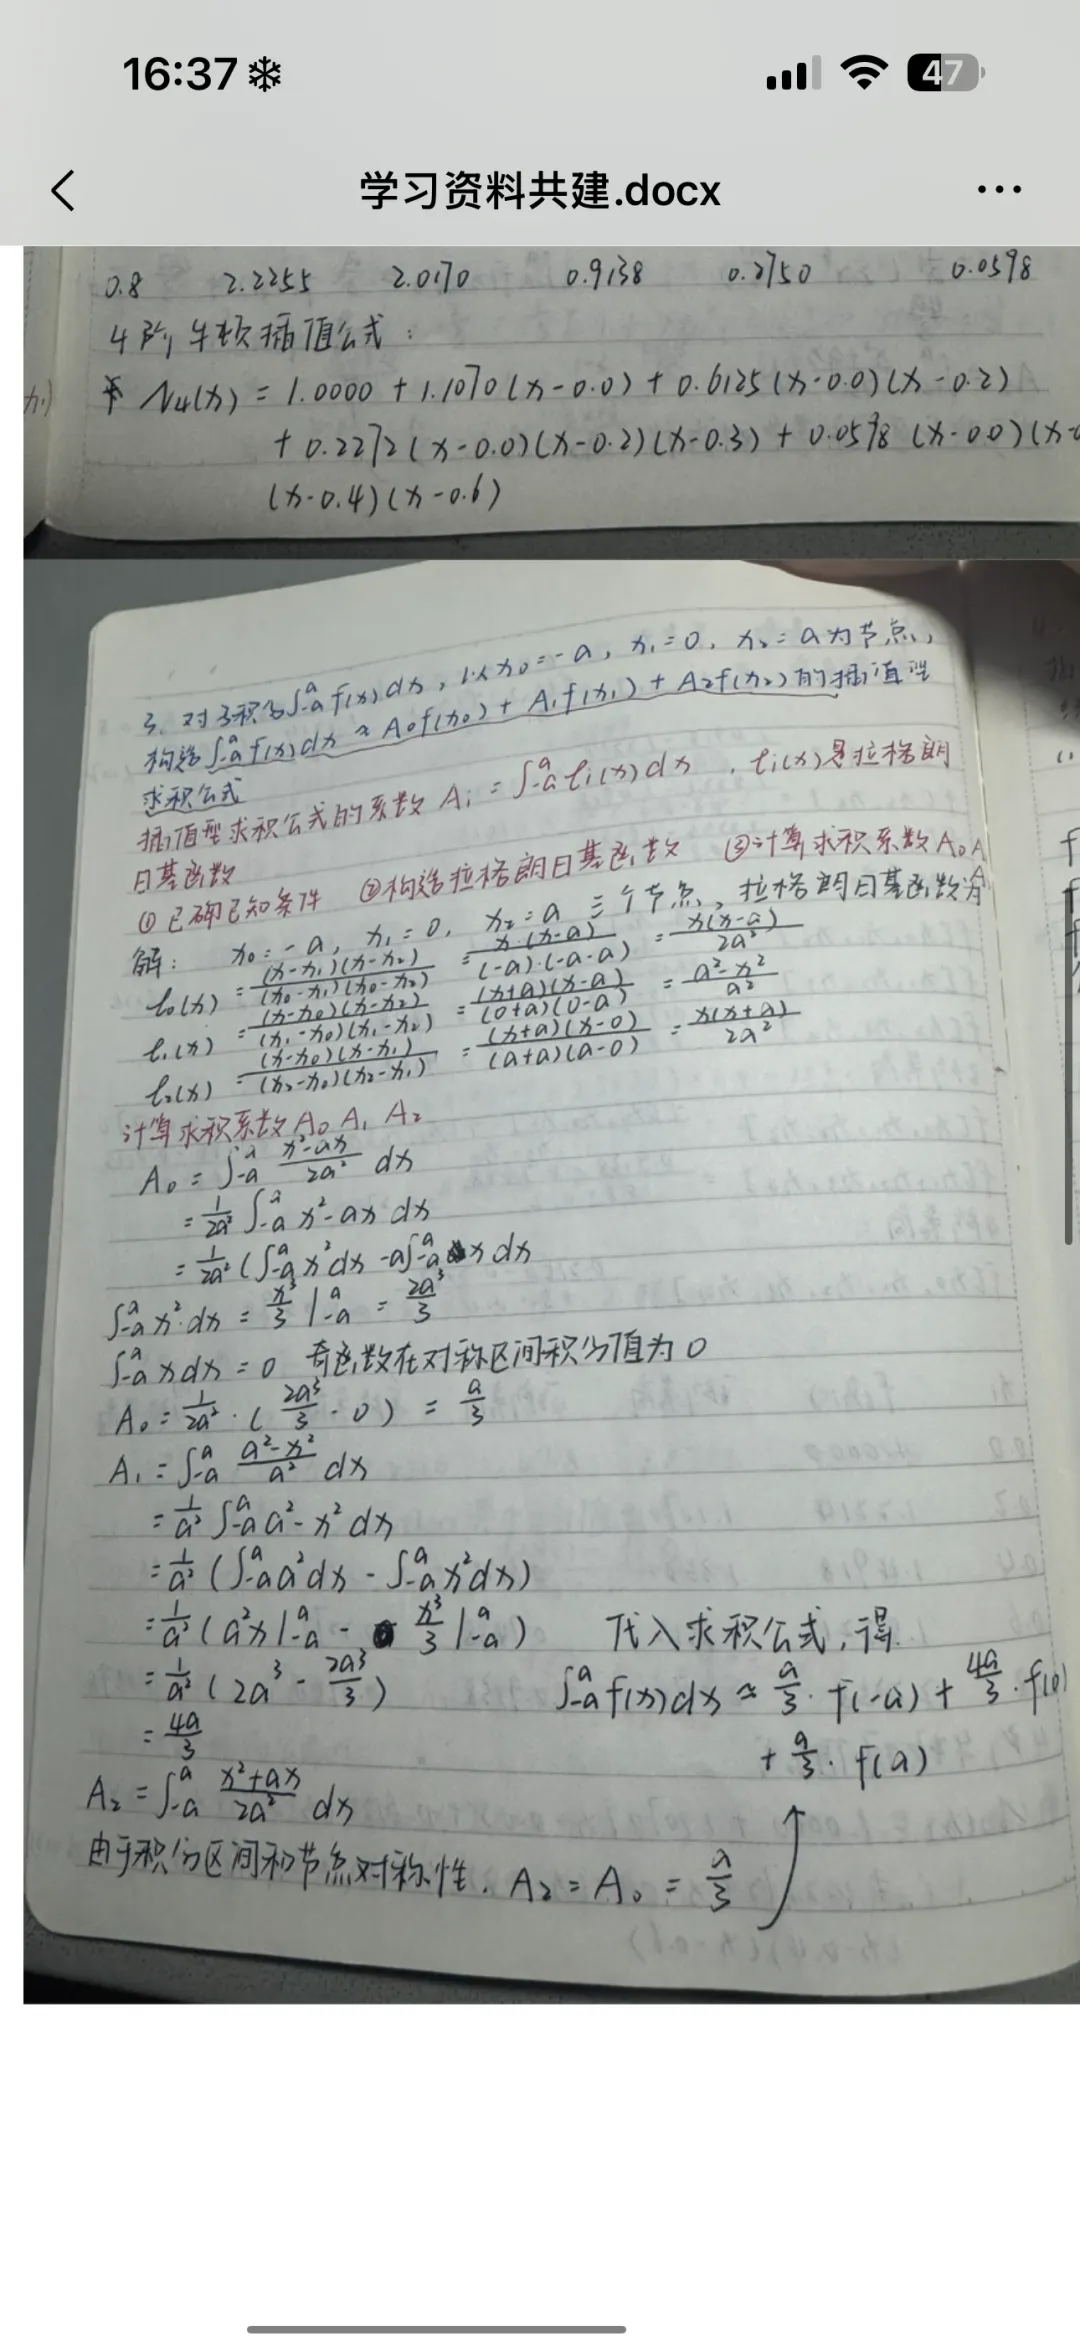 16:37
47
学习资料共建.docx
0.8 2.2255 2.0170 0.9138 0.2750 0.0598
4阶牛顿插值公式:
N₄(x) = 1.0000 + 1.1070(x-0.0) + 0.6125(x-0.0)(x-0.2)
+ 0.2272(x-0.0)(x-0.2)(x-0.3) + 0.0598 (x-0.0)(x-0
(x-0.4)(x-0.6)
3. 对于积分∫₋ₐᵃ f(x)dx, 以x₀=-a, x₁=0, x₂=a为节点,
构造∫₋ₐᵃ f(x)dx ≈ A₀f(x₀) + A₁f(x₁) + A₂f(x₂)的插值型
求积公式
插值型求积公式的系数 Aᵢ = ∫₋ₐᵃ lᵢ(x)dx, lᵢ(x)是拉格朗
日基函数
①已确已知条件 ②构造拉格朗日基函数 ③计算求积系数A₀A
解: x₀=-a, x₁=0, x₂=a 三个节点, 拉格朗日基函数为
l₀(x) = (x-x₁)(x-x₂)/(x₀-x₁)(x₀-x₂) = x·(x-a)/(-a)·(-a-a) = x(x-a)/2a²
l₁(x) = (x-x₀)(x-x₂)/(x₁-x₀)(x₁-x₂) = (x+a)(x-a)/(0+a)(0-a) = a²-x²/a²
l₂(x) = (x-x₀)(x-x₁)/(x₂-x₀)(x₂-x₁) = (x+a)(x-0)/(a+a)(a-0) = x(x+a)/2a²
计算求积系数A₀ A₁ A₂
A₀ = ∫₋ₐᵃ x²-ax/2a² dx
= 1/2a² ∫₋ₐᵃ x²-ax dx
= 1/2a² (∫₋ₐᵃ x²dx -a∫₋ₐᵃ x dx
∫₋ₐᵃ x²dx = x³/3 |₋ₐᵃ = 2a³/3
∫₋ₐᵃ xdx = 0 奇函数在对称区间积分值为0
A₀ = 1/2a² · (2a³/3 - 0) = a/3
A₁ = ∫₋ₐᵃ a²-x²/a² dx
= 1/a² ∫₋ₐᵃ a²-x² dx
= 1/a² (∫₋ₐᵃ a²dx - ∫₋ₐᵃ x²dx)
= 1/a² (a²x|₋ₐᵃ - x³/3 |₋ₐᵃ)
= 1/a² (2a³ - 2a³/3)
= 4a/3
A₂ = ∫₋ₐᵃ x²+ax/2a² dx
由于积分区间和节点对称性, A₂ = A₀ = a/3
代入求积公式, 得
∫₋ₐᵃ f(x)dx ≈ a/3 · f(-a) + 4a/3 · f(0)
+ a/3 · f(a)